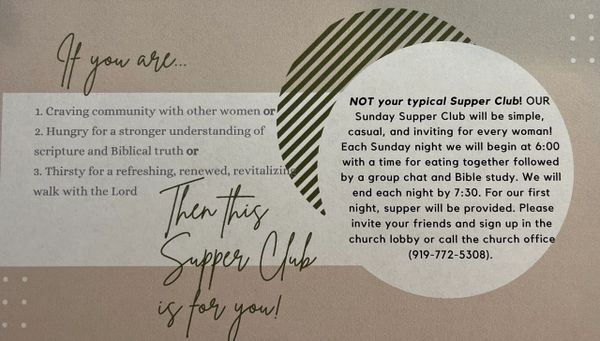 If you are...
1. Craving community with other women or
2. Hungry for a stronger understanding of
scripture and Biblical truth or
3. Thirsty for a refreshing, renewed, revitalizing
walk with the Lord
Then this
Supper Club
is for you!
NOT your typical Supper Club! OUR
Sunday Supper Club will be simple,
casual, and inviting for every woman!
Each Sunday night we will begin at 6:00
with a time for eating together followed
by a group chat and Bible study. We will
end each night by 7:30. For our first
night, supper will be provided. Please
invite your friends and sign up in the
church lobby or call the church office
(919-772-5308).